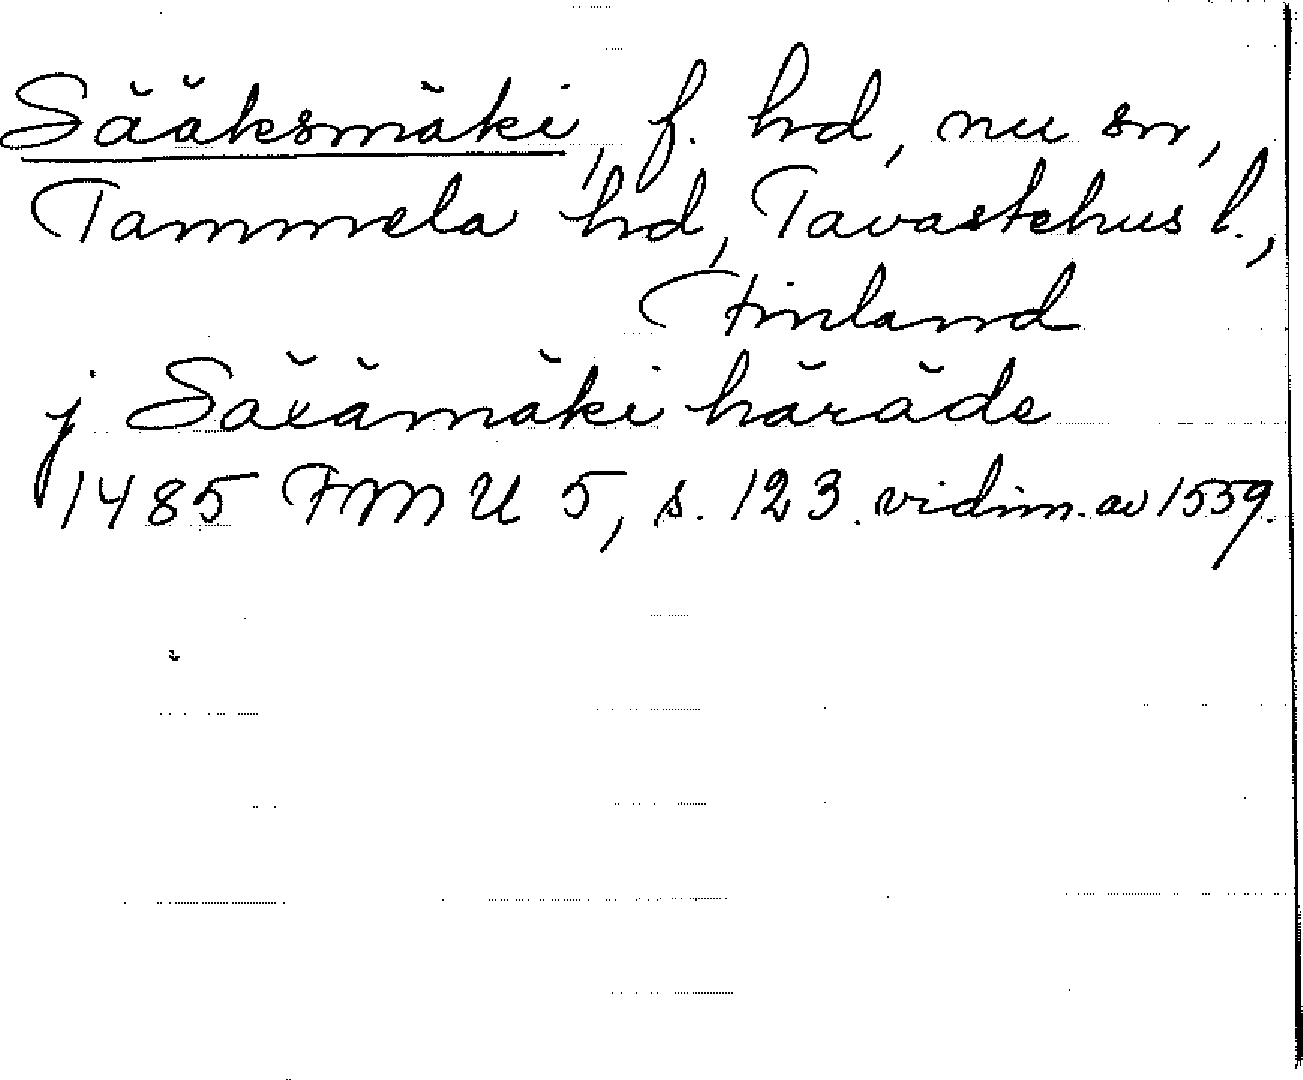 Sääksmäki, f. hd, nu sn,
Tammela hd, Tavastehus l.,
Finland
j Säxämäki häräde
1485 FMU 5, s. 123. vidim. av 1559.